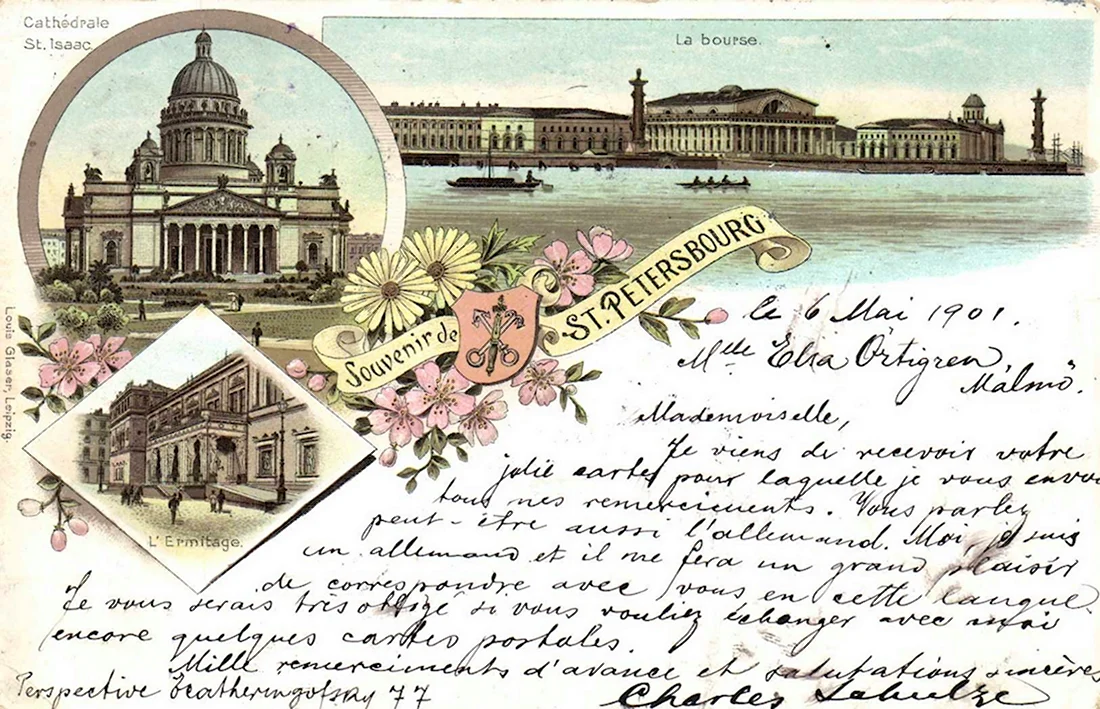 Cathédrale
St. Isaac.
La bourse.
Souvenir de
ST. PETERSBOURG
L'Ermitage.
Louis Glaser, Leipzig.
le 6 Mai 1901.
Mlle Elsa Örtigren
Malmö.
Mademoiselle,
Je viens de recevoir votre
jolie carte, pour laquelle je vous envoi
tous mes remerciments. Vous parlez
peut-être aussi l'allemand. Moi, je suis
un allemand et il me fera un grand plaisir
de correspondre avec vous en cette langue.
Je vous serais très obligé si vous vouliez échanger avec moi
encore quelques cartes postales.
Mille remerciments d'avance et salutations sincères
Charles Schulze
Perspective Ecatheringofsky 77